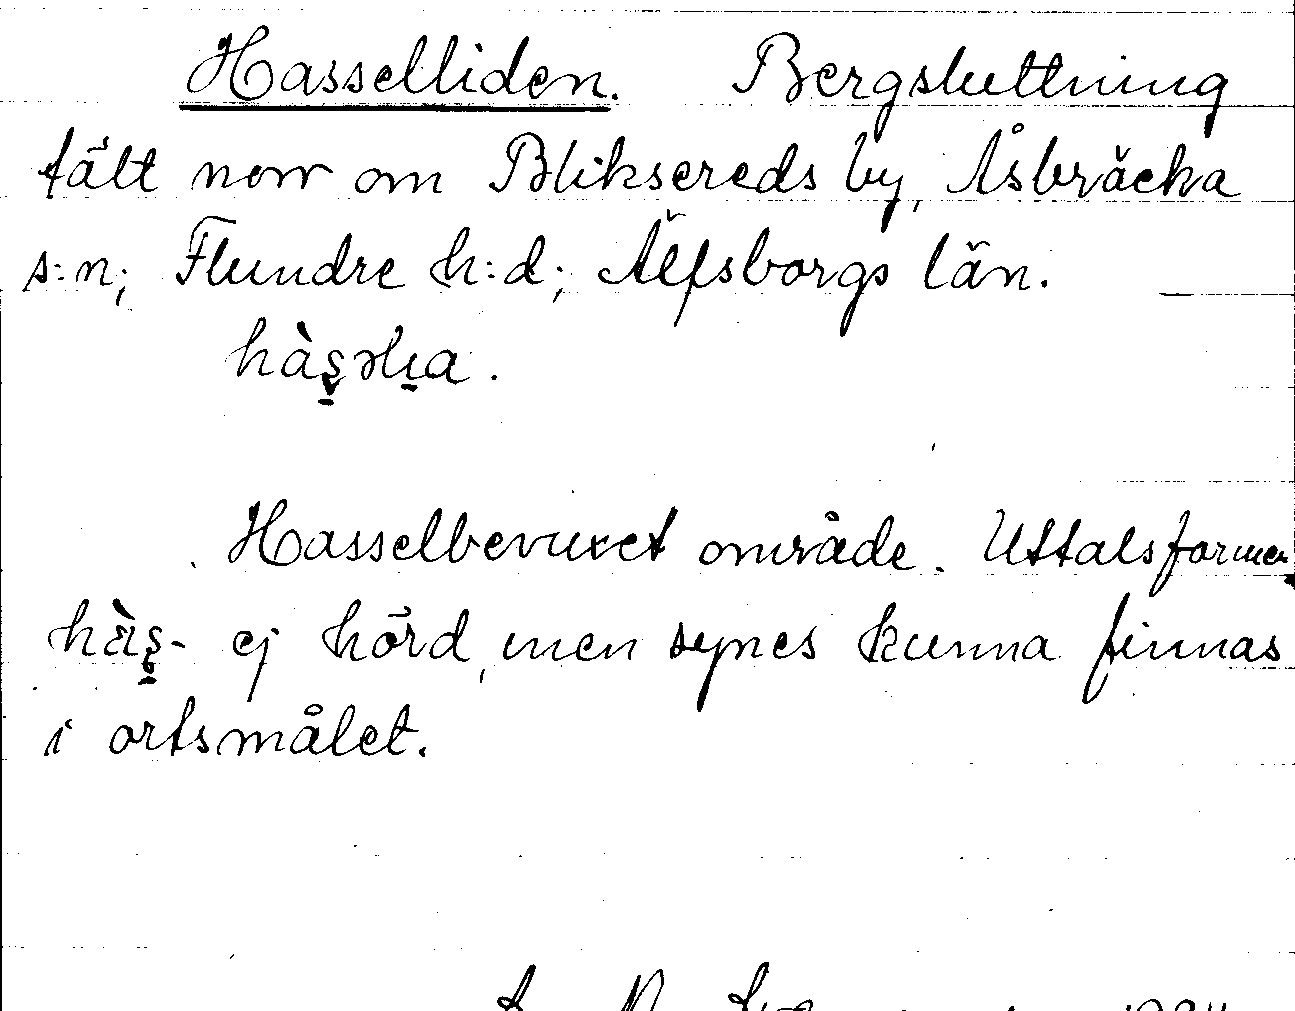 Hasselliden. Bergsluttning
tätt norr om Bliksereds by, Åsbräcka
s:n; Flundre h:d; Älfsborgs län.
Hasselbevuxet område. Uttalsformen
ej hörd, men synes kunna finnas
i ortsmålet.